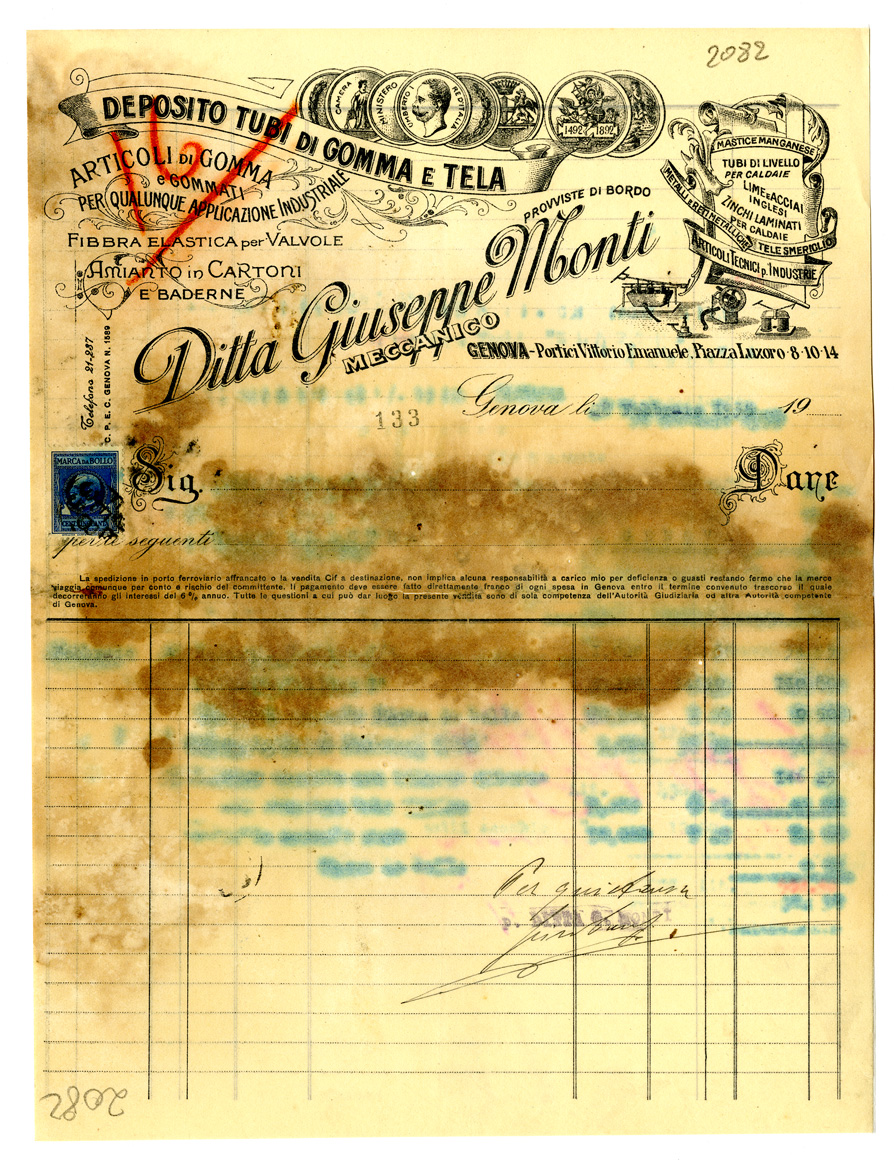 2082
CAMERA
MINISTERO
UMBERTO I
RE D'ITALIA
1492 1892
DEPOSITO TUBI DI GOMMA E TELA
ARTICOLI DI GOMMA
e GOMMATI
PER QUALUNQUE APPLICAZIONE INDUSTRIALE
FIBBRA ELASTICA per VALVOLE
AMIANTO in CARTONI
E BADERNE
MASTICE MANGANESE
TUBI DI LIVELLO
PER CALDAIE
LIME e ACCIAI
INGLESI
ZINCHI LAMINATI
PER CALDAIE
METALLI E RETI METALLICHE
TELE SMERIGLIO
ARTICOLI TECNICI p. INDUSTRIE
PROVVISTE DI BORDO
Ditta Giuseppe Monti
MECCANICO
GENOVA - Portici Vittorio Emanuele, Piazza Luxoro · 8 · 10 · 14
Telefono 21-237
C. P. E. C. GENOVA N. 1589
133
Genova li 19
MARCA DA BOLLO
Sig. Dare
per li seguenti
La spedizione in porto ferroviario affrancato o la vendita Cif a destinazione, non implica alcuna responsabilità a carico mio per deficienza o guasti restando fermo che la merce
viaggia comunque per conto e rischio del committente. Il pagamento deve essere fatto direttamente franco di ogni spesa in Genova entro il termine convenuto trascorso il quale
decorreranno gli interessi del 6 % annuo. Tutte le questioni a cui può dar luogo la presente vendita sono di sola competenza dell'Autorità Giudiziaria od altra Autorità competente
di Genova.
Per quietanza
2082